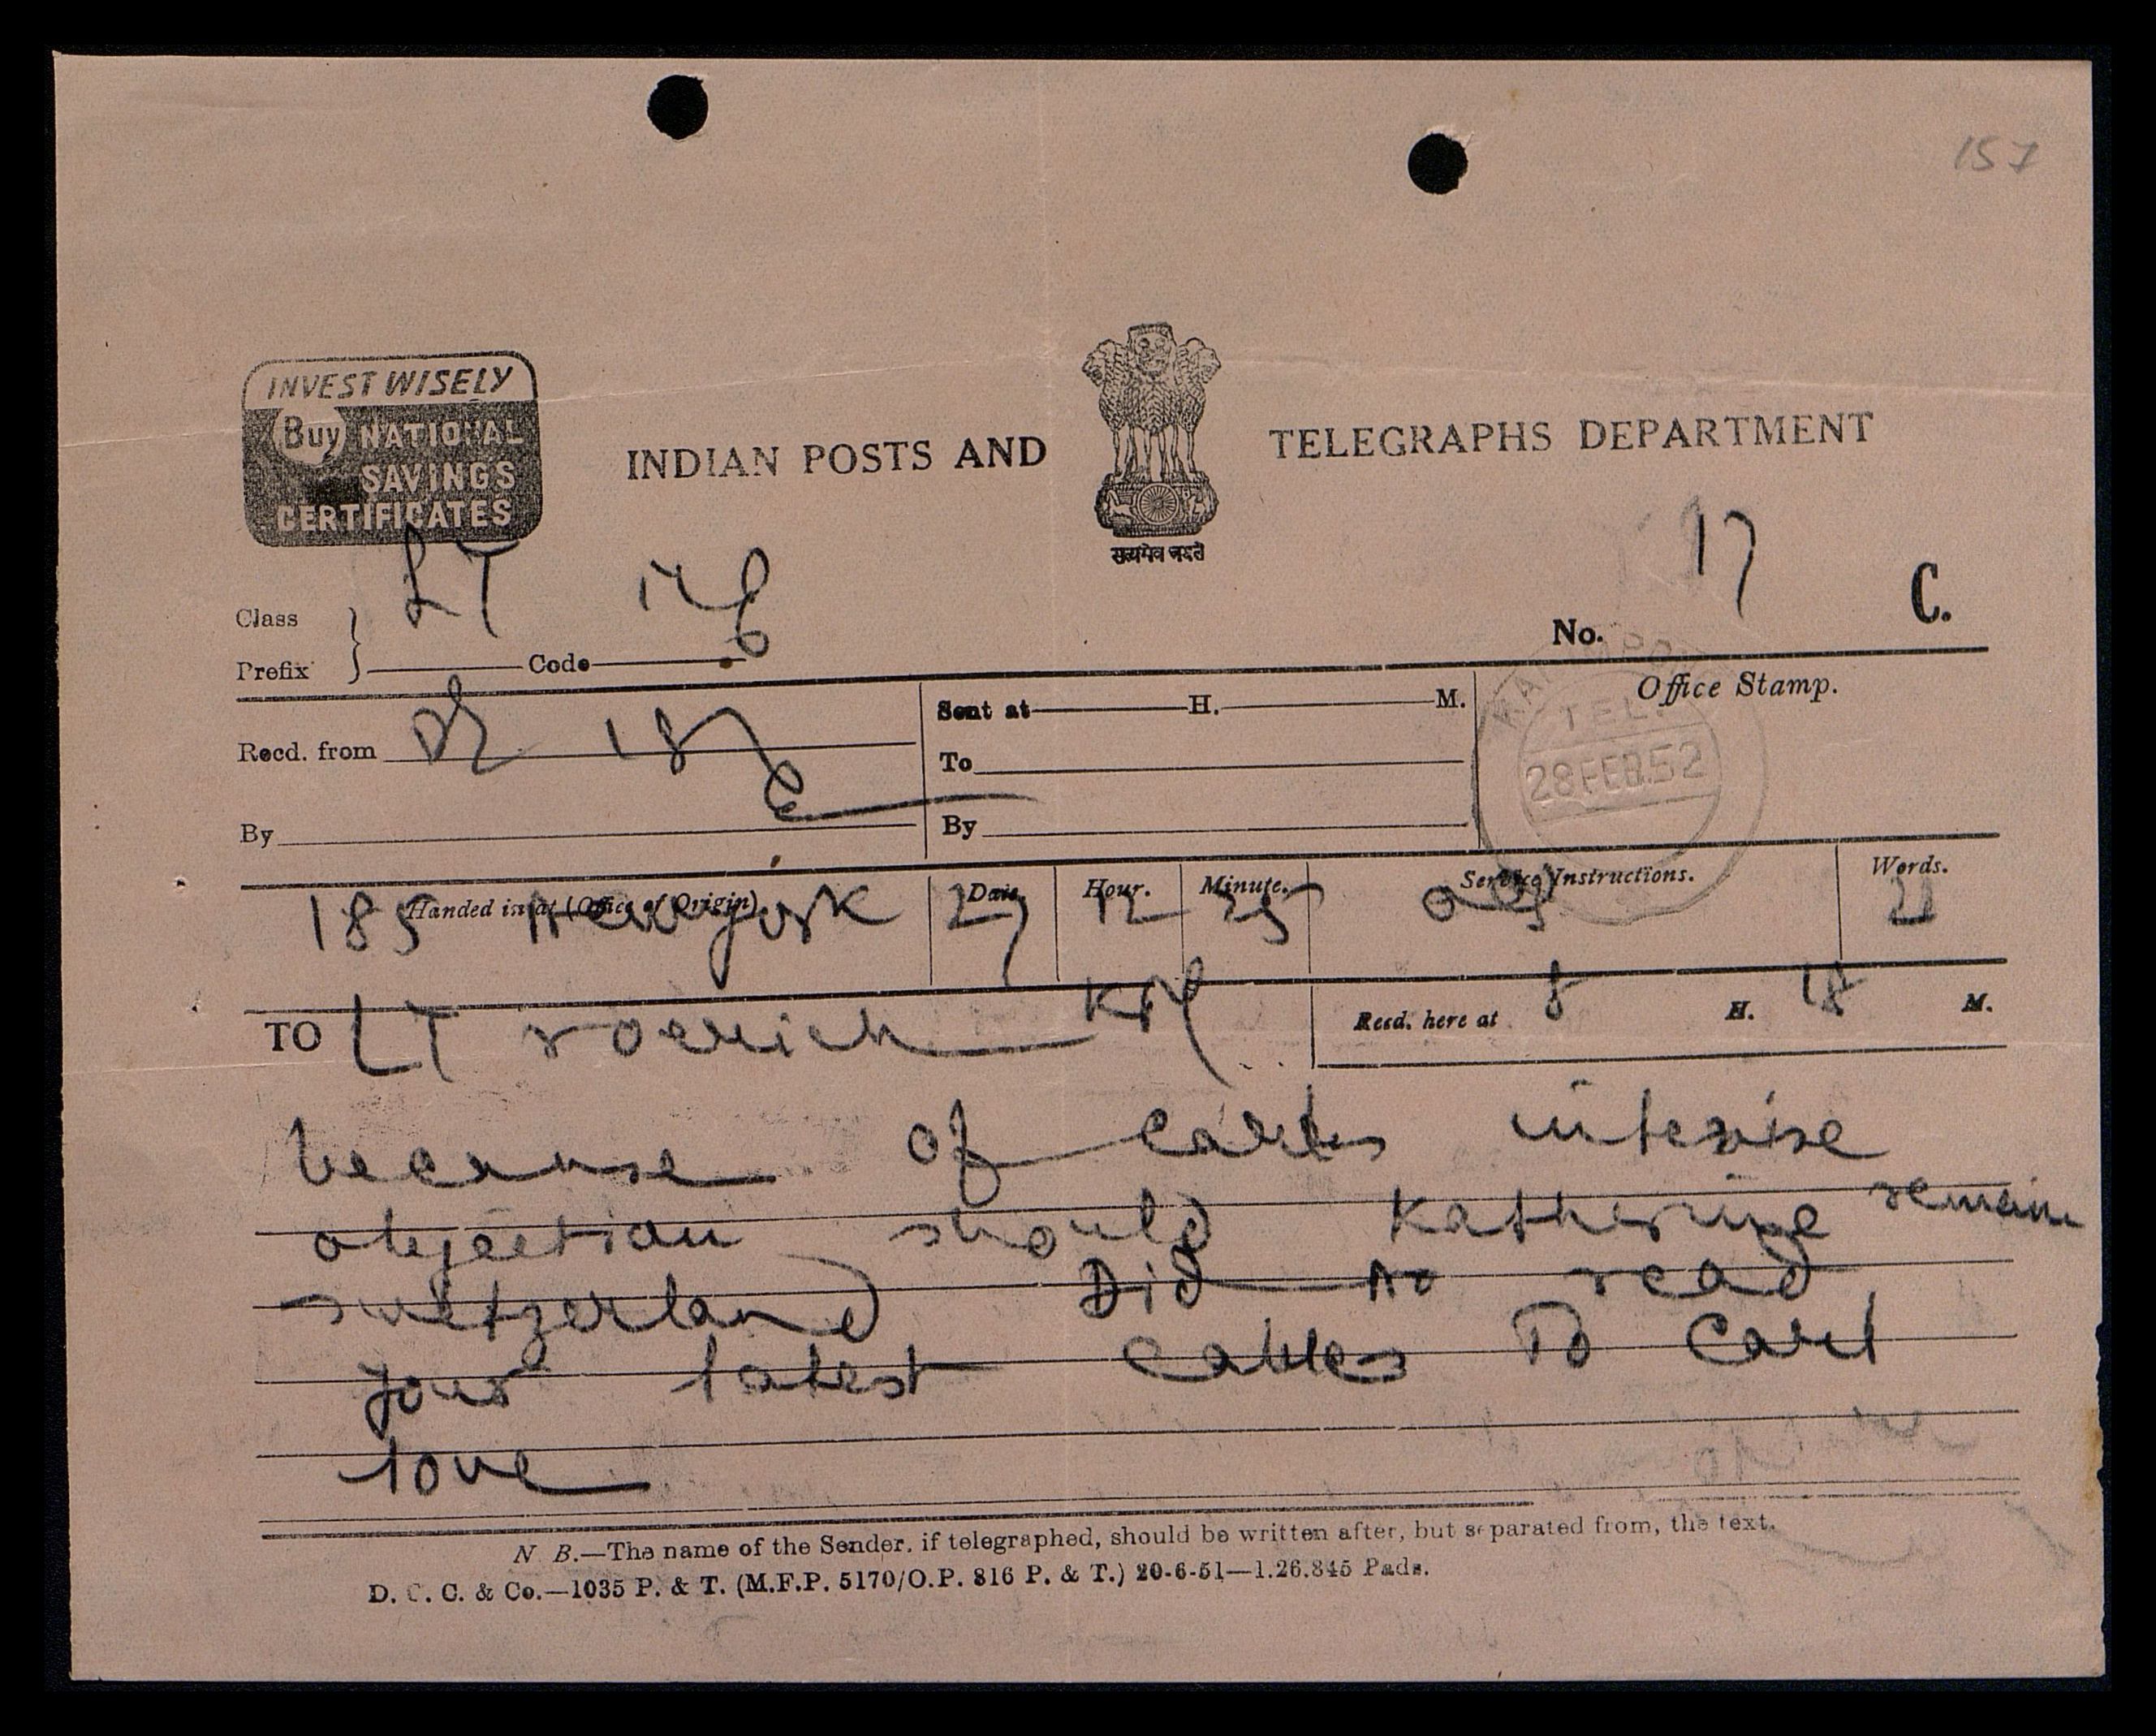 157
INVEST WISELY
Buy NATIONAL
SAVINGS
CERTIFICATES
INDIAN POSTS AND TELEGRAPHS DEPARTMENT
सत्यमेव जयते
17
LT
Class
Prefix
Code
No.
C.
Recd. from
Sent at H. M.
Office Stamp.
To
TEL.
28 FEB. 52
By
By
Handed in at (Office of Origin) Date. Hour. Minute. Service Instructions. Words.
185 Newyork 27 12 25 21
TO LT roerich
Recd. here at 8 H. 18 M.
because of carls intense
objection should Katherine remain
switzerland Did no read
your latest cables To Carl
love
N B.—The name of the Sender, if telegraphed, should be written after, but separated from, the text.
D. C. C. & Co.—1035 P. & T. (M.F.P. 5170/O.P. 816 P. & T.) 20-6-51—1.26.845 Pads.